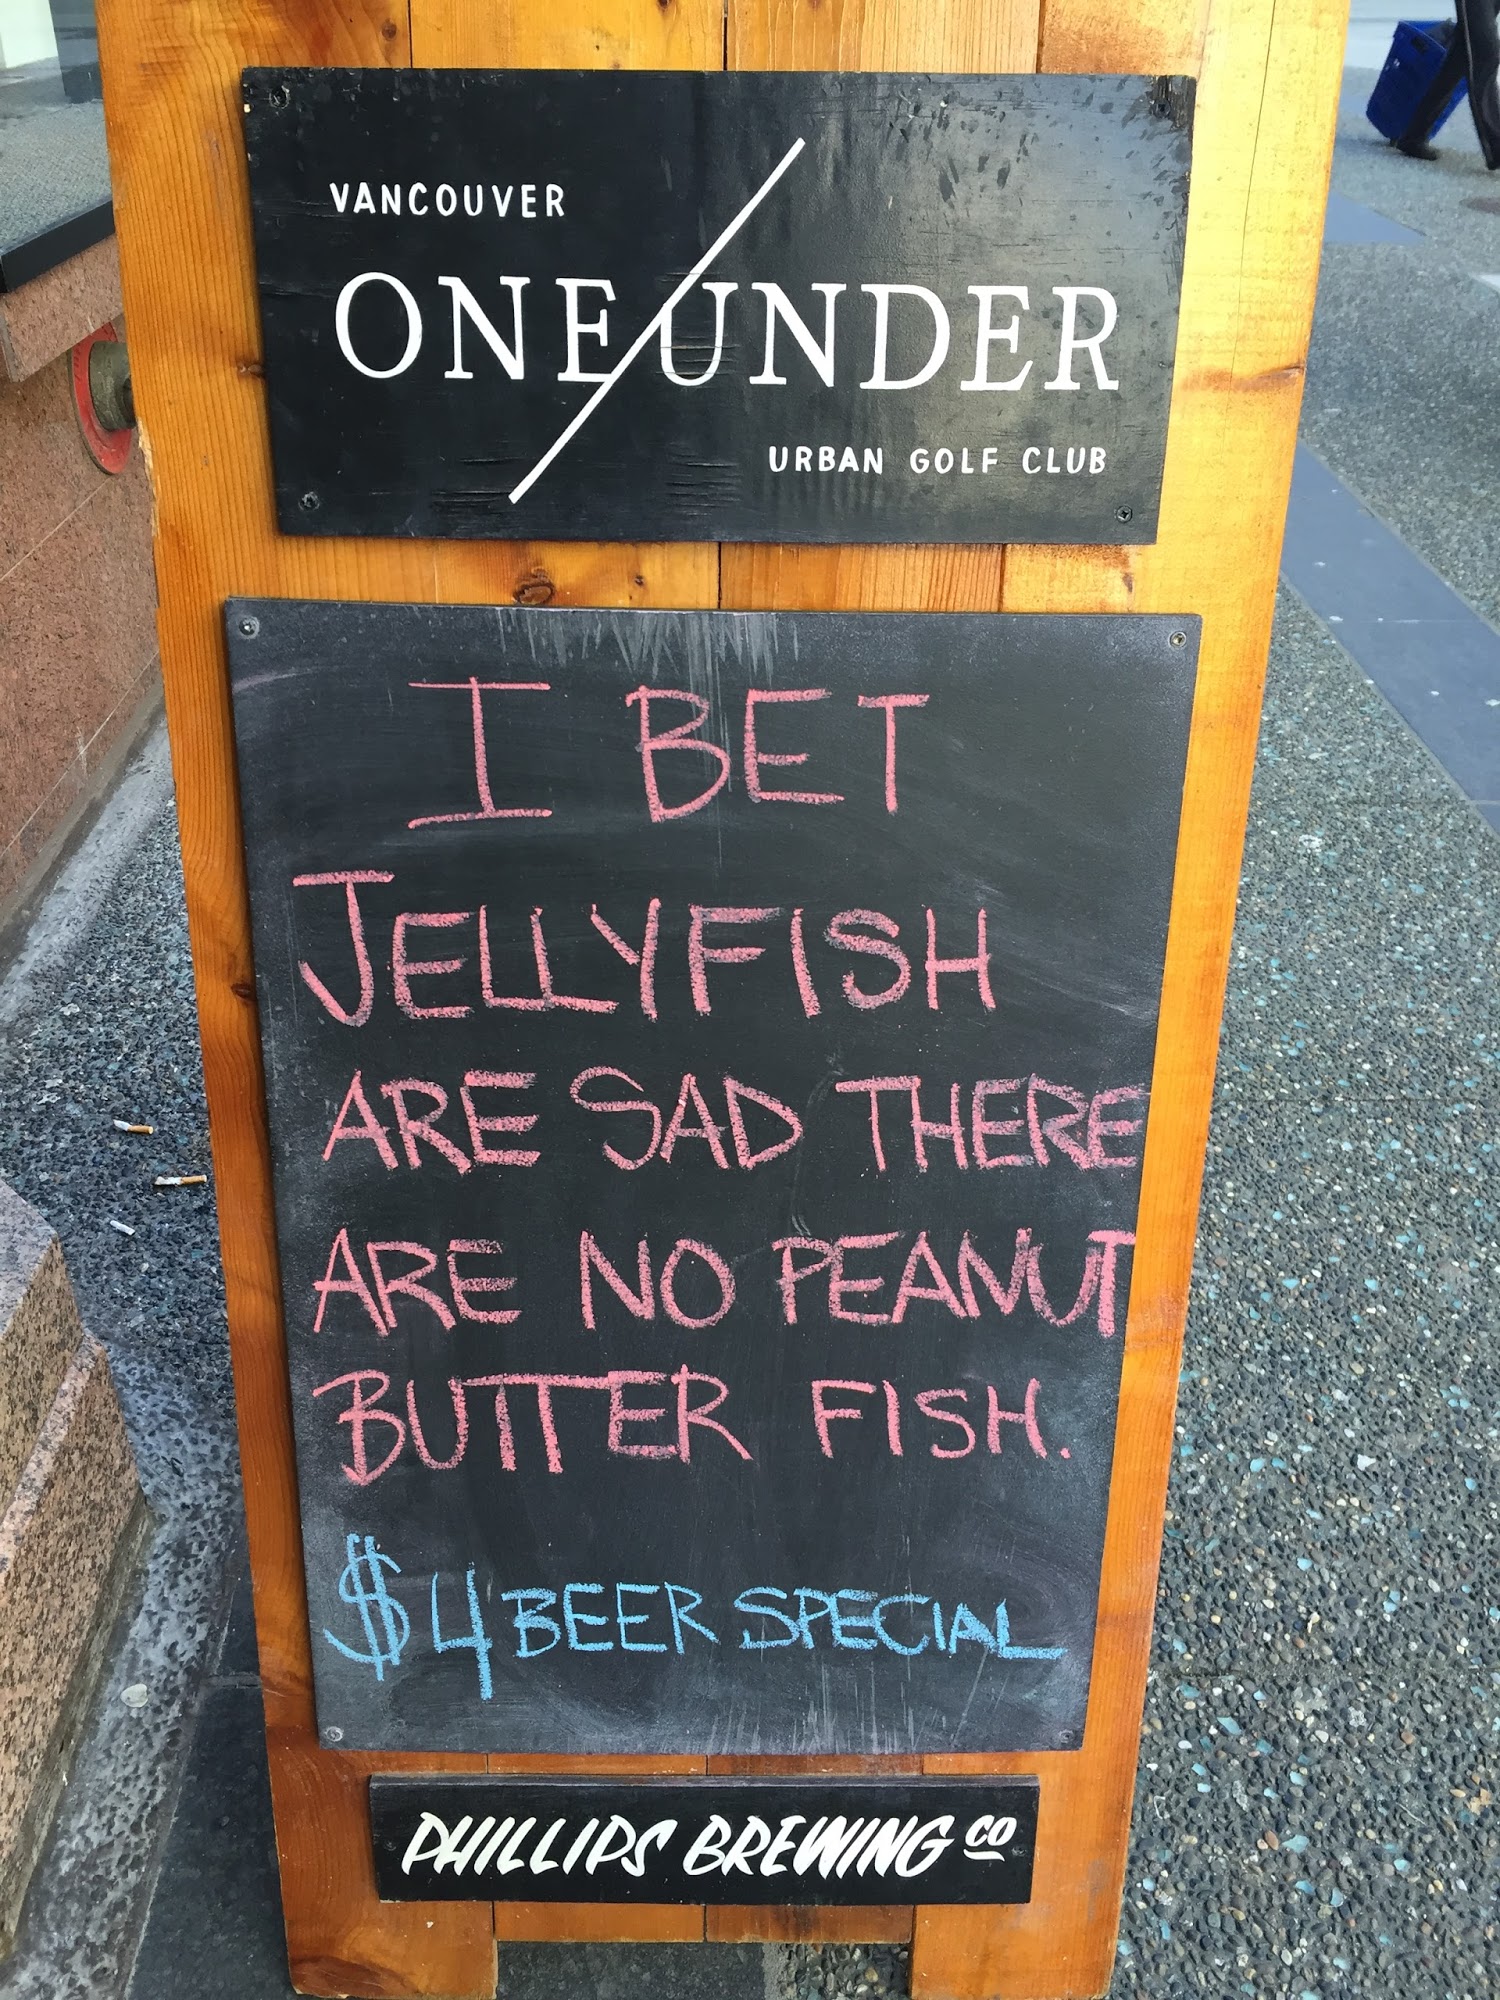 VANCOUVER
ONE/UNDER
URBAN GOLF CLUB
I BET
JELLYFISH
ARE SAD THERE
ARE NO PEANUT
BUTTER FISH.
$4 BEER SPECIAL
PHILLIPS BREWING CO